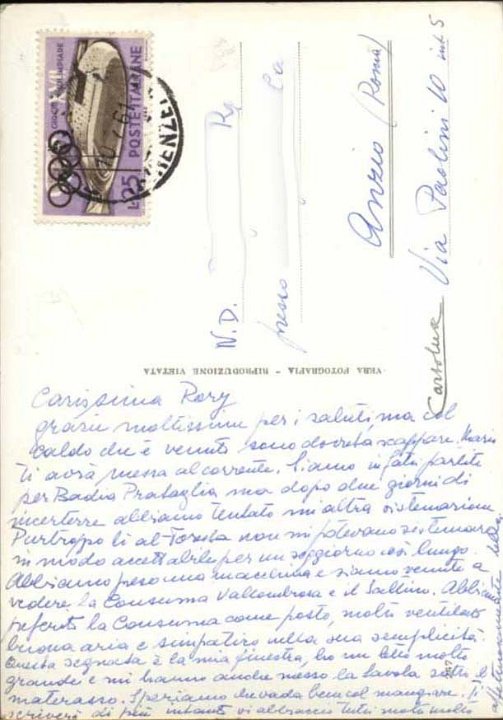 GIOCHI XVII OLIMPIADE
POSTE ITALIANE
L. 25
FIRENZE
N.D. Ro
presso
Anzio (Roma)
Via Paolini 10 int 5
Cartolina
VERA FOTOGRAFIA - RIPRODUZIONE VIETATA
Carissima Rory
grazie moltissimo per i saluti, ma col
caldo che è venuto sono dovuta scappare. Mario
ti avrà messa al corrente. Siamo infatti partite
per Badia Prataglia ma dopo due giorni di
incertezze abbiamo tentato un'altra sistemazione
Purtroppo lì al Foresta non mi potevano sistemare
in modo accettabile per un soggiorno così lungo.
Abbiamo preso una macchina e siamo venute a
vedere, la Consuma Vallombrosa e il Saltino. Abbiamo
preferito la Consuma come posto, molto ventilato
buona aria e simpatico nella sua semplicità.
Questa segnata è la mia finestra, ho un letto molto
grande e mi hanno anche messo la tavola sotto il
materasso. Speriamo che vada bene col mangiare. Ti
scriverò di più intanto vi abbraccio tutti molto molto